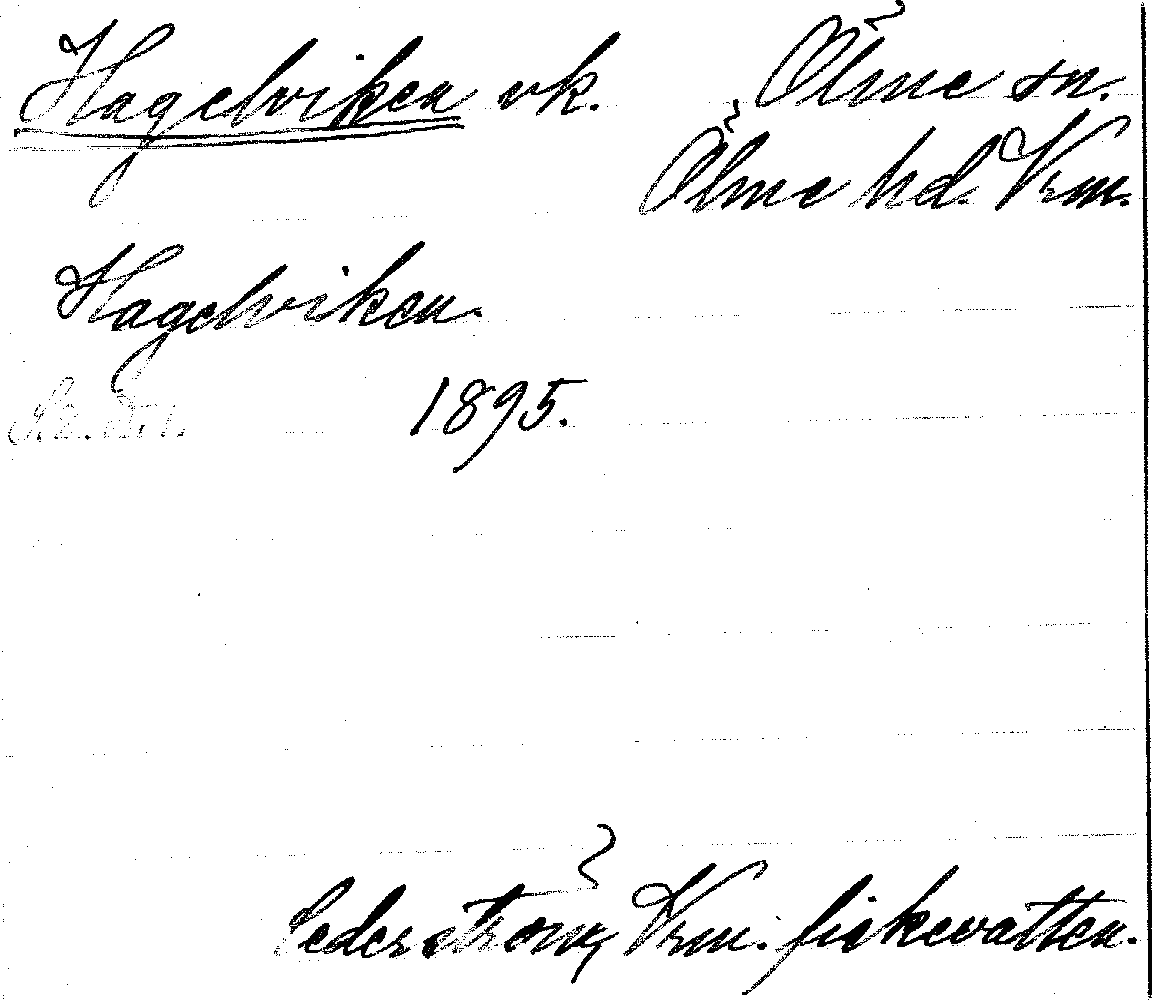 Hagelviken vk. Ölme sn.
Ölme hd. Vrm.
Hagelviken.
1895.
Cederström, Vrm. fiskevatten.